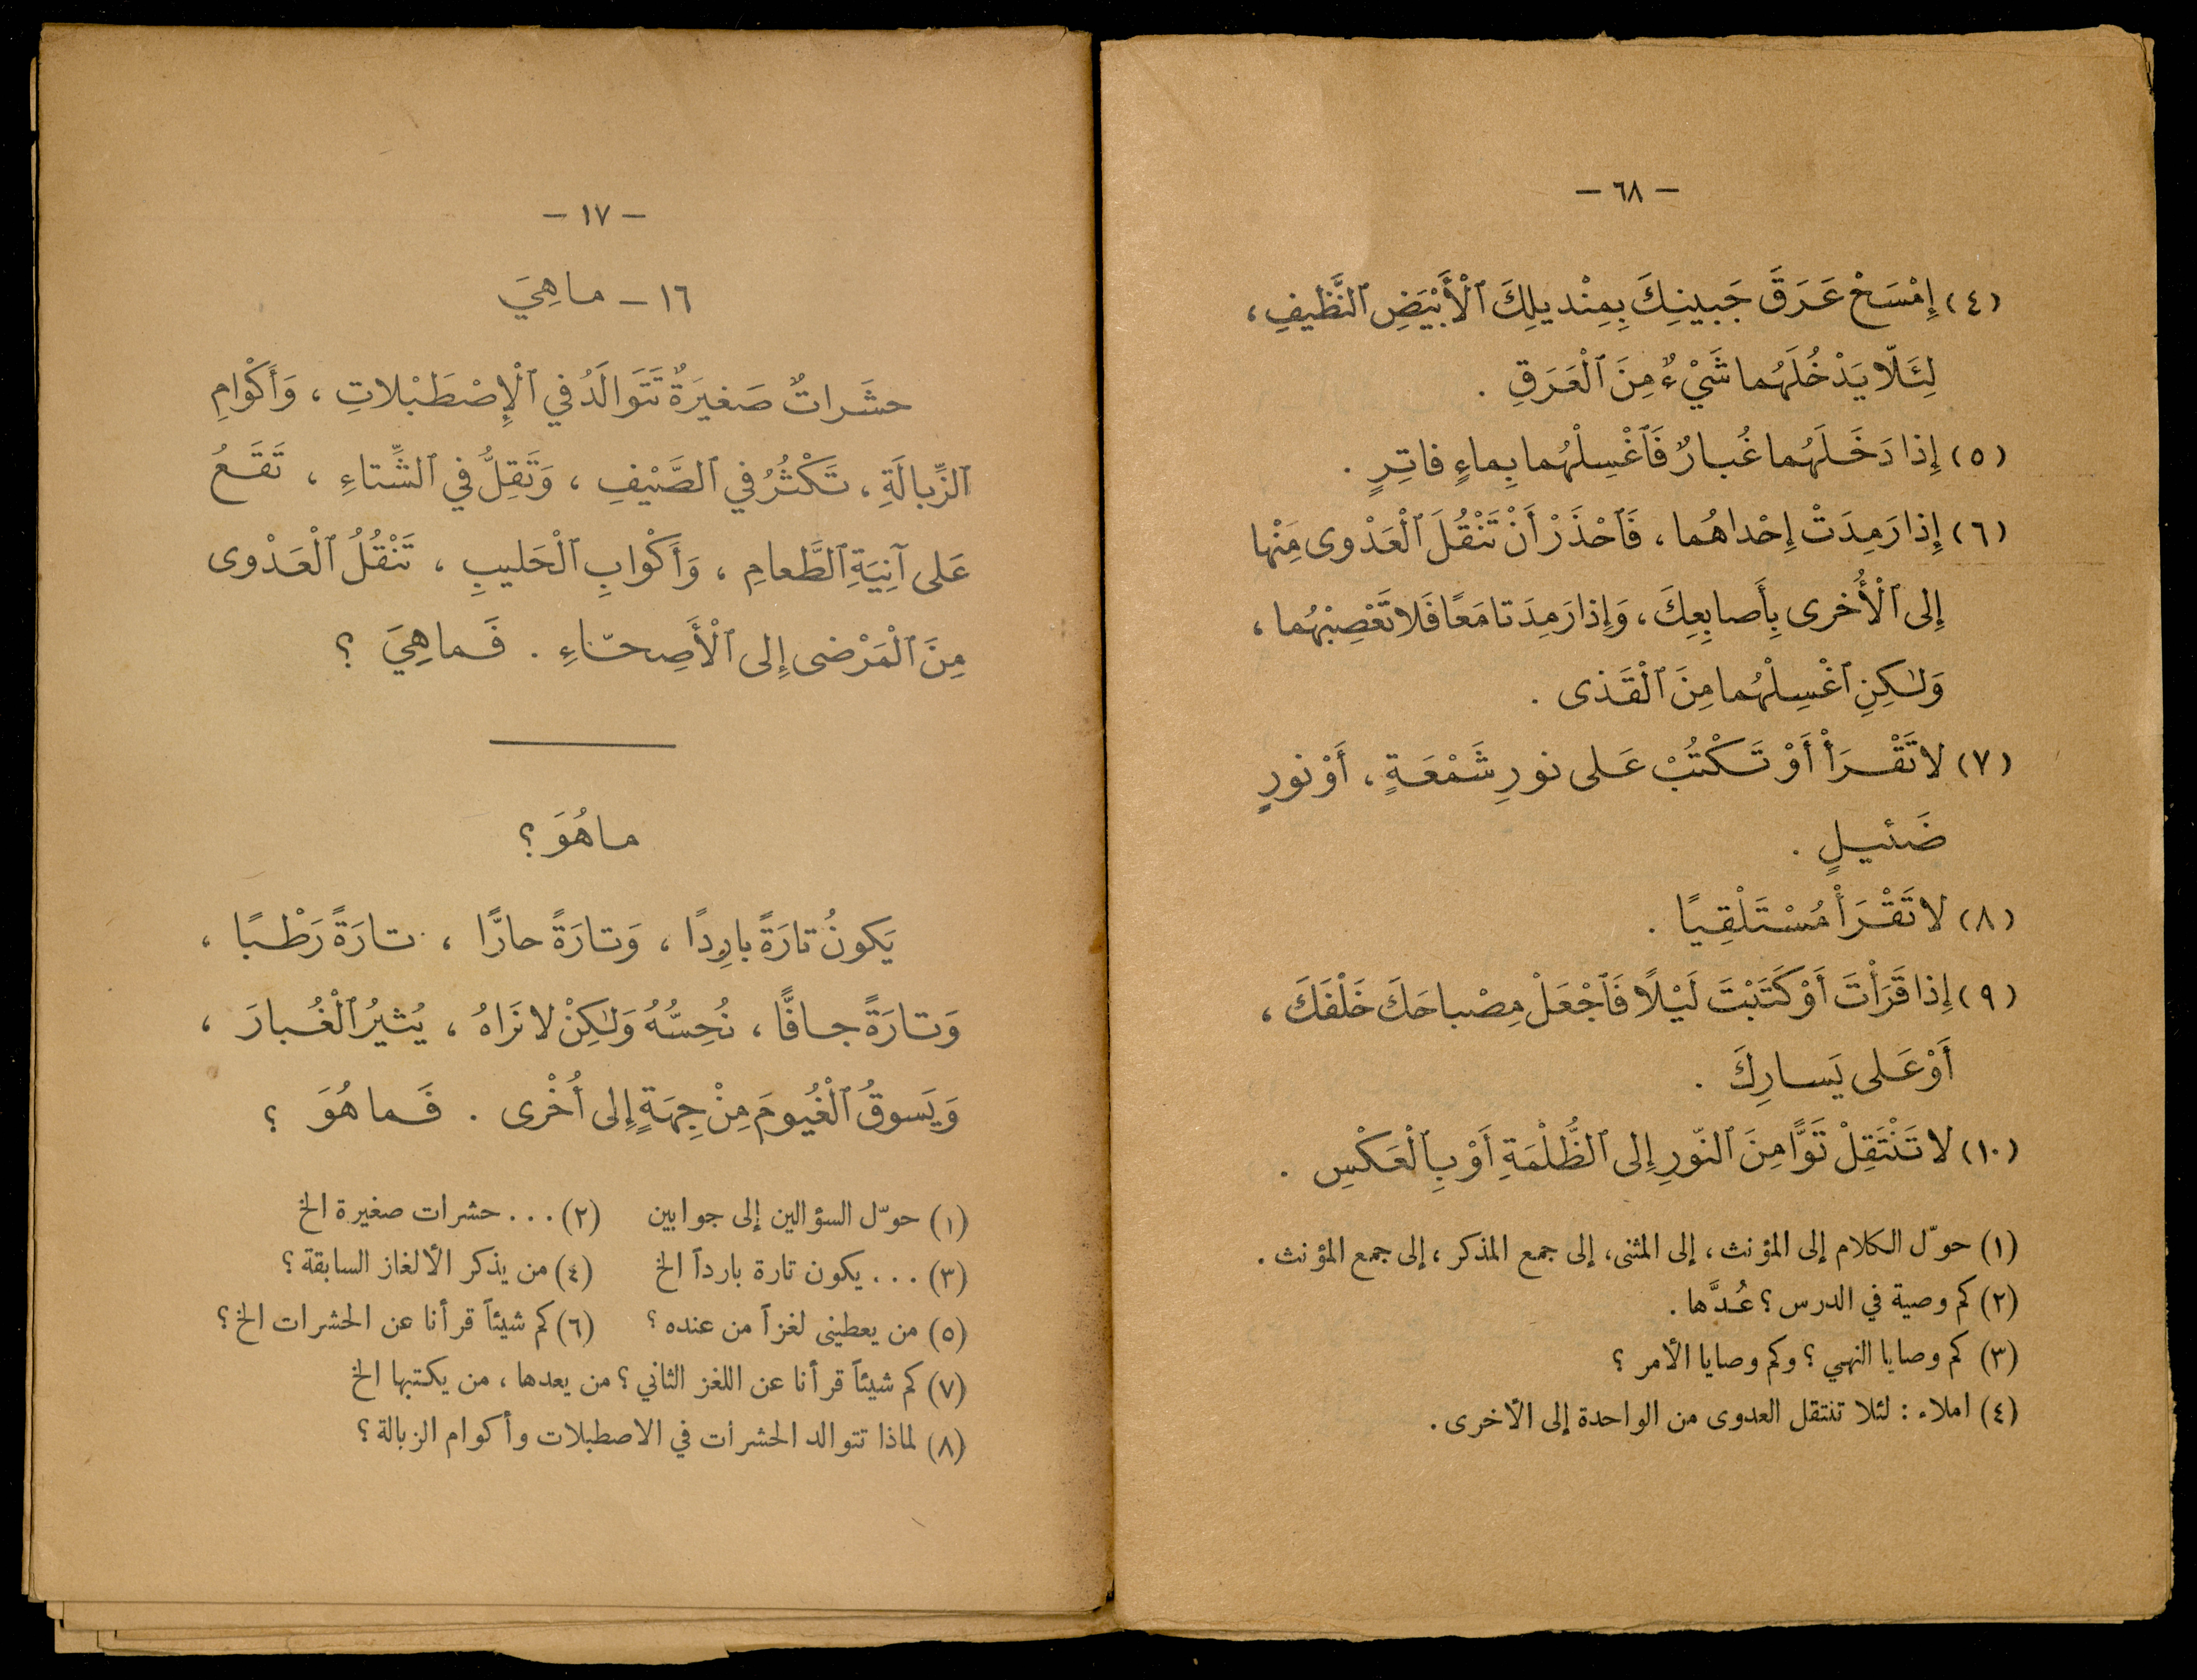 — ٦٨ —
(٤) إِمْسَحْ عَرَقَ جَبينِكَ بِمِنْديلِكَ ٱلْأَبْيَضِ ٱلنَّظيفِ ،
لِئَلّا يَدْخُلَهُما شَيْءٌ مِنَ ٱلْعَرَقِ .
(٥) إِذا دَخَلَهُما غُبارٌ فَٱغْسِلْهُما بِماءٍ فاتِرٍ .
(٦) إِذا رَمِدَتْ إِحْداهُما ، فَٱحْذَرْ أَنْ تَنْقُلَ ٱلْعَدْوى مِنْها
إِلى ٱلْأُخرى بِأَصابِعِكَ ، وَإِذا رَمِدَتا مَعًا فَلا تَعْصِبْهُما ،
وَلٰكِنِ ٱغْسِلْهُما مِنَ ٱلْقَذى .
(٧) لا تَقْرَأْ أَوْ تَكْتُبْ عَلى نورِ شَمْعَةٍ ، أَوْ نورٍ
ضَئيلٍ .
(٨) لا تَقْرَأْ مُسْتَلْقِيًا .
(٩) إِذا قَرَأْتَ أَوْ كَتَبْتَ لَيْلًا فَٱجْعَلْ مِصْباحَكَ خَلْفَكَ ،
أَوْ عَلى يَسارِكَ .
(١٠) لا تَنْتَقِلْ تَوًّا مِنَ ٱلنّورِ إِلى ٱلظُّلْمَةِ أَوْ بِٱلْعَكْسِ .
(١) حوّل الكلام إلى المؤنث ، إلى المثنى ، إلى جمع المذكر ، إلى جمع المؤنث .
(٢) كم وصية في الدرس ؟ عُدَّها .
(٣) كم وصايا النهي ؟ وكم وصايا الأمر ؟
(٤) املاء : لئلا تنتقل العدوى من الواحدة إلى الأخرى .
— ١٧ —
١٦ – ما هِيَ
حشَراتٌ صَغيرَةٌ تَتَوالَدُ في ٱلْإِصْطَبْلاتِ ، وَأَكْوامِ
ٱلزِّبالَةِ ، تَكْثُرُ في ٱلصَّيْفِ ، وَتَقِلُّ في ٱلشِّتاءِ ، تَقَعُ
عَلى آنِيَةِ ٱلطَّعامِ ، وَأَكْوابِ ٱلْحَليبِ ، تَنْقُلُ ٱلْعَدْوى
مِنَ ٱلْمَرْضى إِلى ٱلْأَصِحّاءِ . فَما هِيَ ؟
ما هُوَ ؟
يَكونُ تارَةً بارِدًا ، وَتارَةً حارًّا ، تارَةً رَطْبًا ،
وَتارَةً جافًّا ، نُحِسُّهُ وَلٰكِنْ لا نَراهُ ، يُثيرُ ٱلْغُبارَ ،
وَيَسوقُ ٱلْغُيومَ مِنْ جِهَةٍ إِلى أُخْرى . فَما هُوَ ؟
(١) حوّل السؤالين إلى جوابين (٢) . . . حشرات صغيرة الخ
(٣) . . . يكون تارة بارداً الخ (٤) من يذكر الألغاز السابقة ؟
(٥) من يعطيني لغزاً من عنده ؟ (٦) كم شيئاً قرأنا عن الحشرات الخ ؟
(٧) كم شيئاً قرأنا عن اللغز الثاني ؟ من يعدها ، من يكتبها الخ
(٨) لماذا تتوالد الحشرات في الاصطبلات وأكوام الزبالة ؟